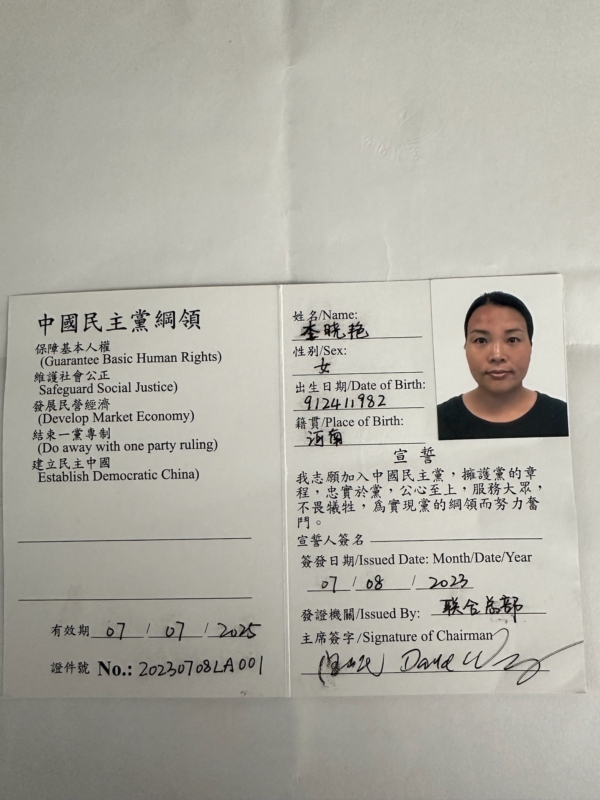 中國民主黨綱領
保障基本人權
(Guarantee Basic Human Rights)
維護社會公正
Safeguard Social Justice)
發展民營經濟
(Develop Market Economy)
結束一黨專制
(Do away with one party ruling)
建立民主中國
Establish Democratic China)
有效期 07 / 07 / 2025
證件號 No.: 20230708LA001
姓名/Name:
李晓艳
性別/Sex:
女
出生日期/Date of Birth:
912411982
籍貫/Place of Birth:
河南
宣誓
我志願加入中國民主黨，擁護黨的章
程，忠實於黨，公心至上，服務大眾，
不畏犠牲，爲實現黨的綱領而努力奮
鬥。
宣誓人簽名
簽發日期/Issued Date: Month/Date/Year
07 / 08 / 2023
發證機關/Issued By: 联合总部
主席簽字/Signature of Chairman